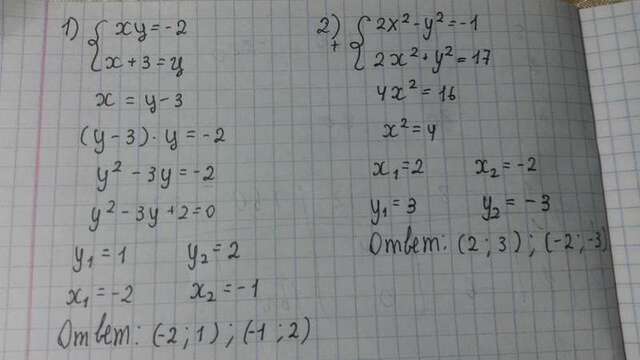 1) { xy = -2
x + 3 = y
x = y - 3
(y - 3) · y = -2
y² - 3y = -2
y² - 3y + 2 = 0
y₁ = 1 y₂ = 2
x₁ = -2 x₂ = -1
Ответ: (-2 ; 1) ; (-1 ; 2)
2) + { 2x² - y² = -1
2x² + y² = 17
4x² = 16
x² = 4
x₁ = 2 x₂ = -2
y₁ = 3 y₂ = -3
Ответ: (2 ; 3) ; (-2 ; -3)